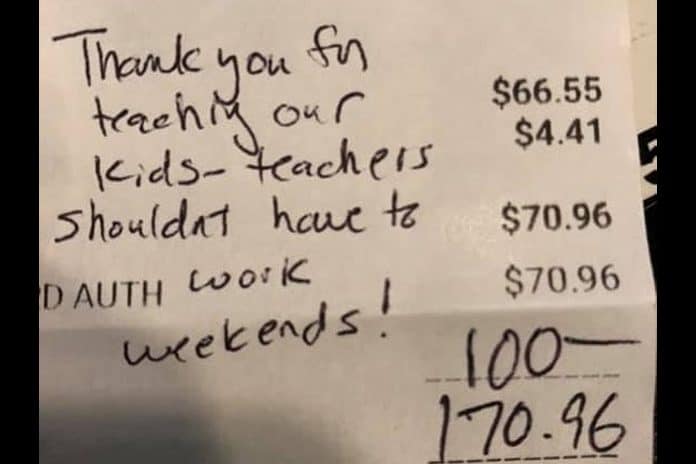 Thank you for
teaching our $66.55
$4.41
kids- teachers
shouldnt have to $70.96
D AUTH work $70.96
weekends!
100—
170.96